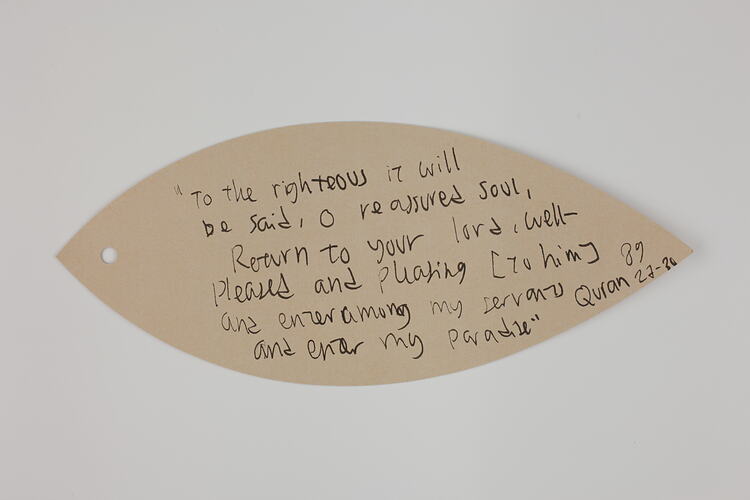 "To the righteous it will
be said, O reassured soul,
Return to your lord, well-
Pleased and pleasing [to him]
and enter among my servants
and enter my paradise"
Quran 89
27-30